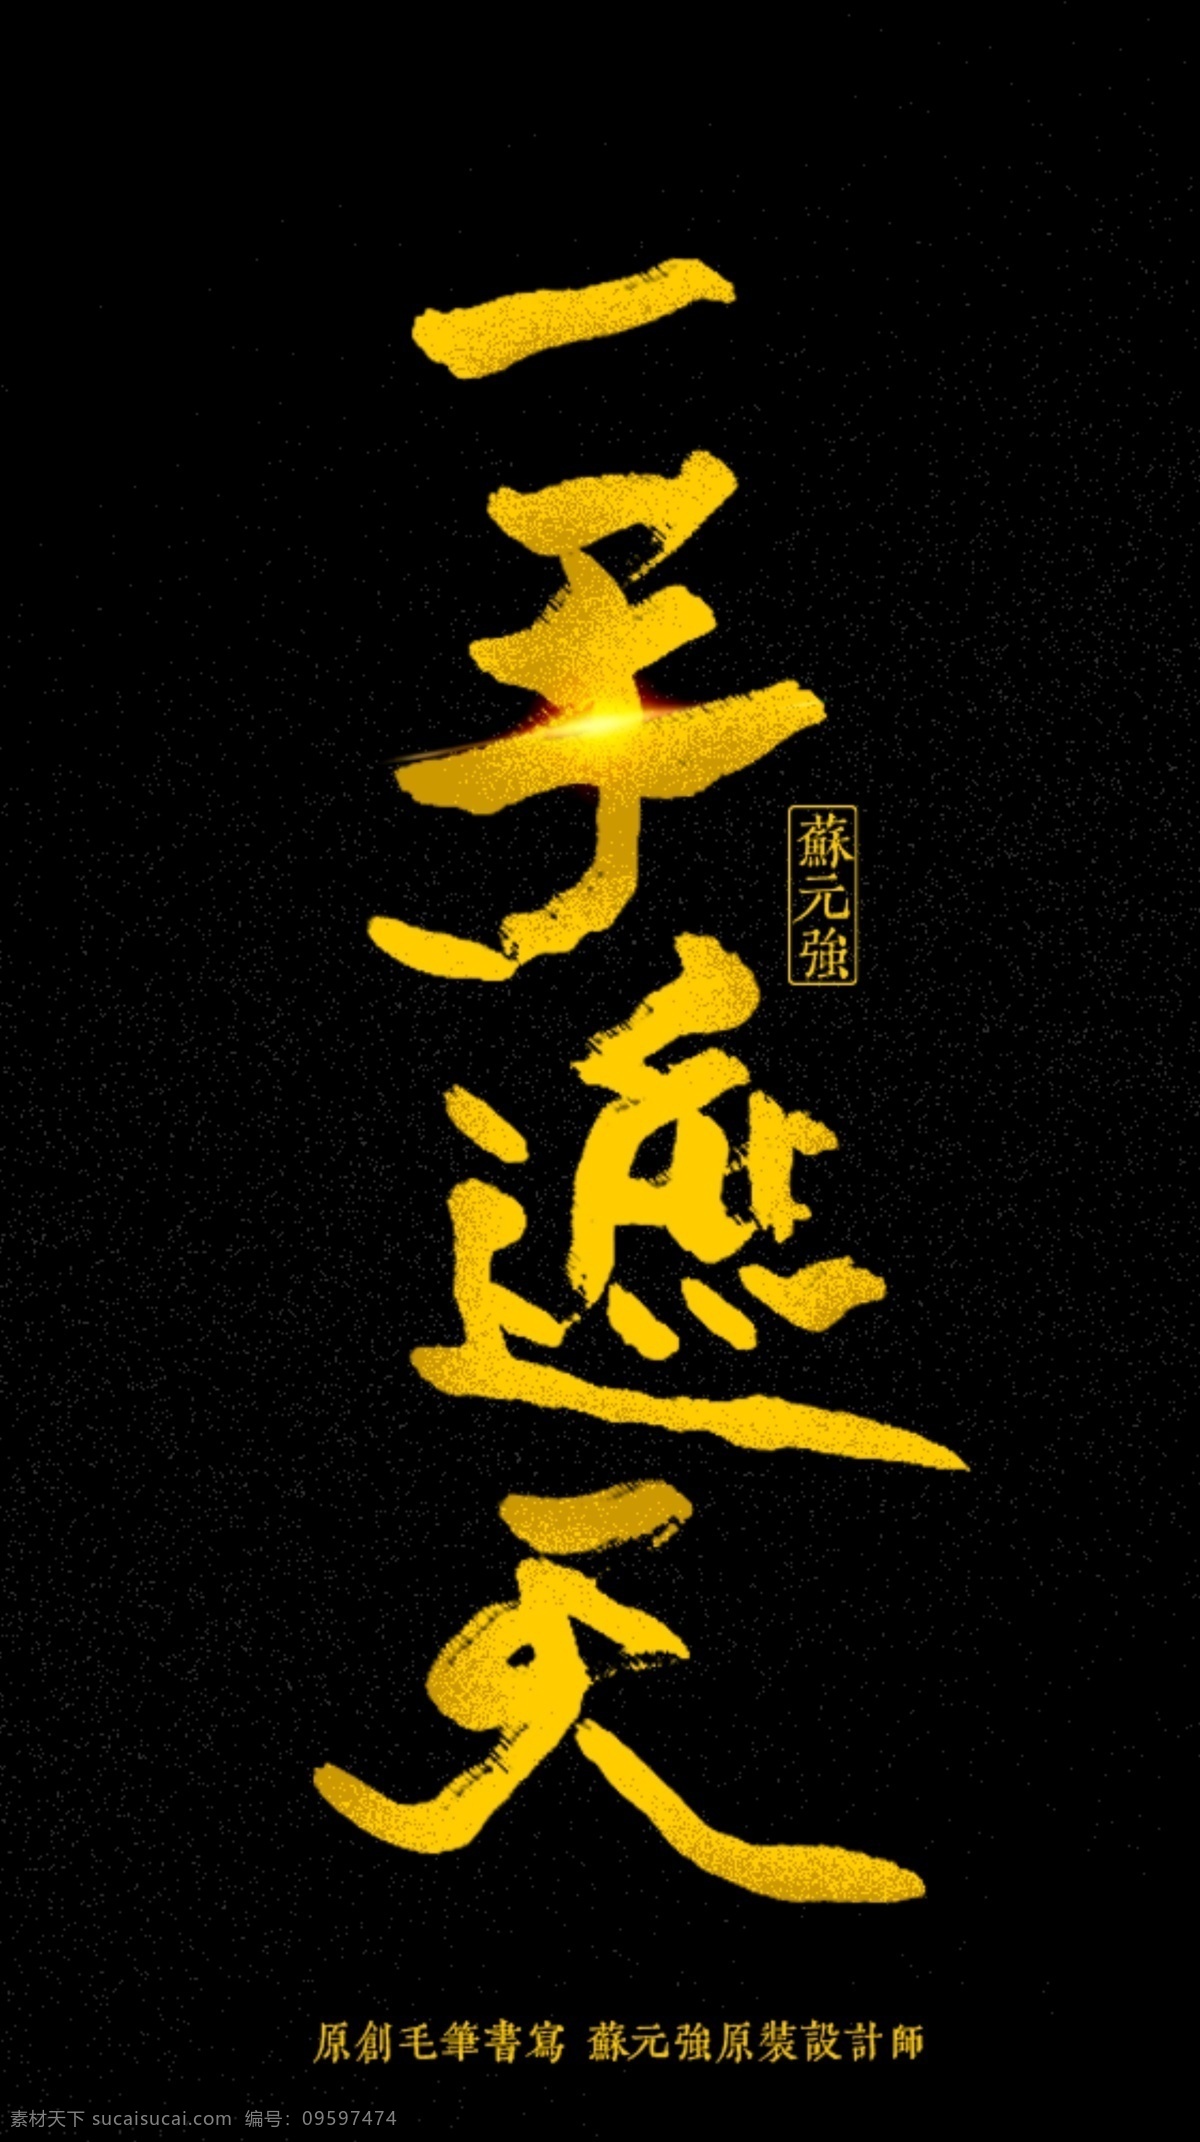 一手遮天
蘇元強
原創毛筆書寫 蘇元強原裝設計師
素材天下 sucaisucai.com 编号：09597474